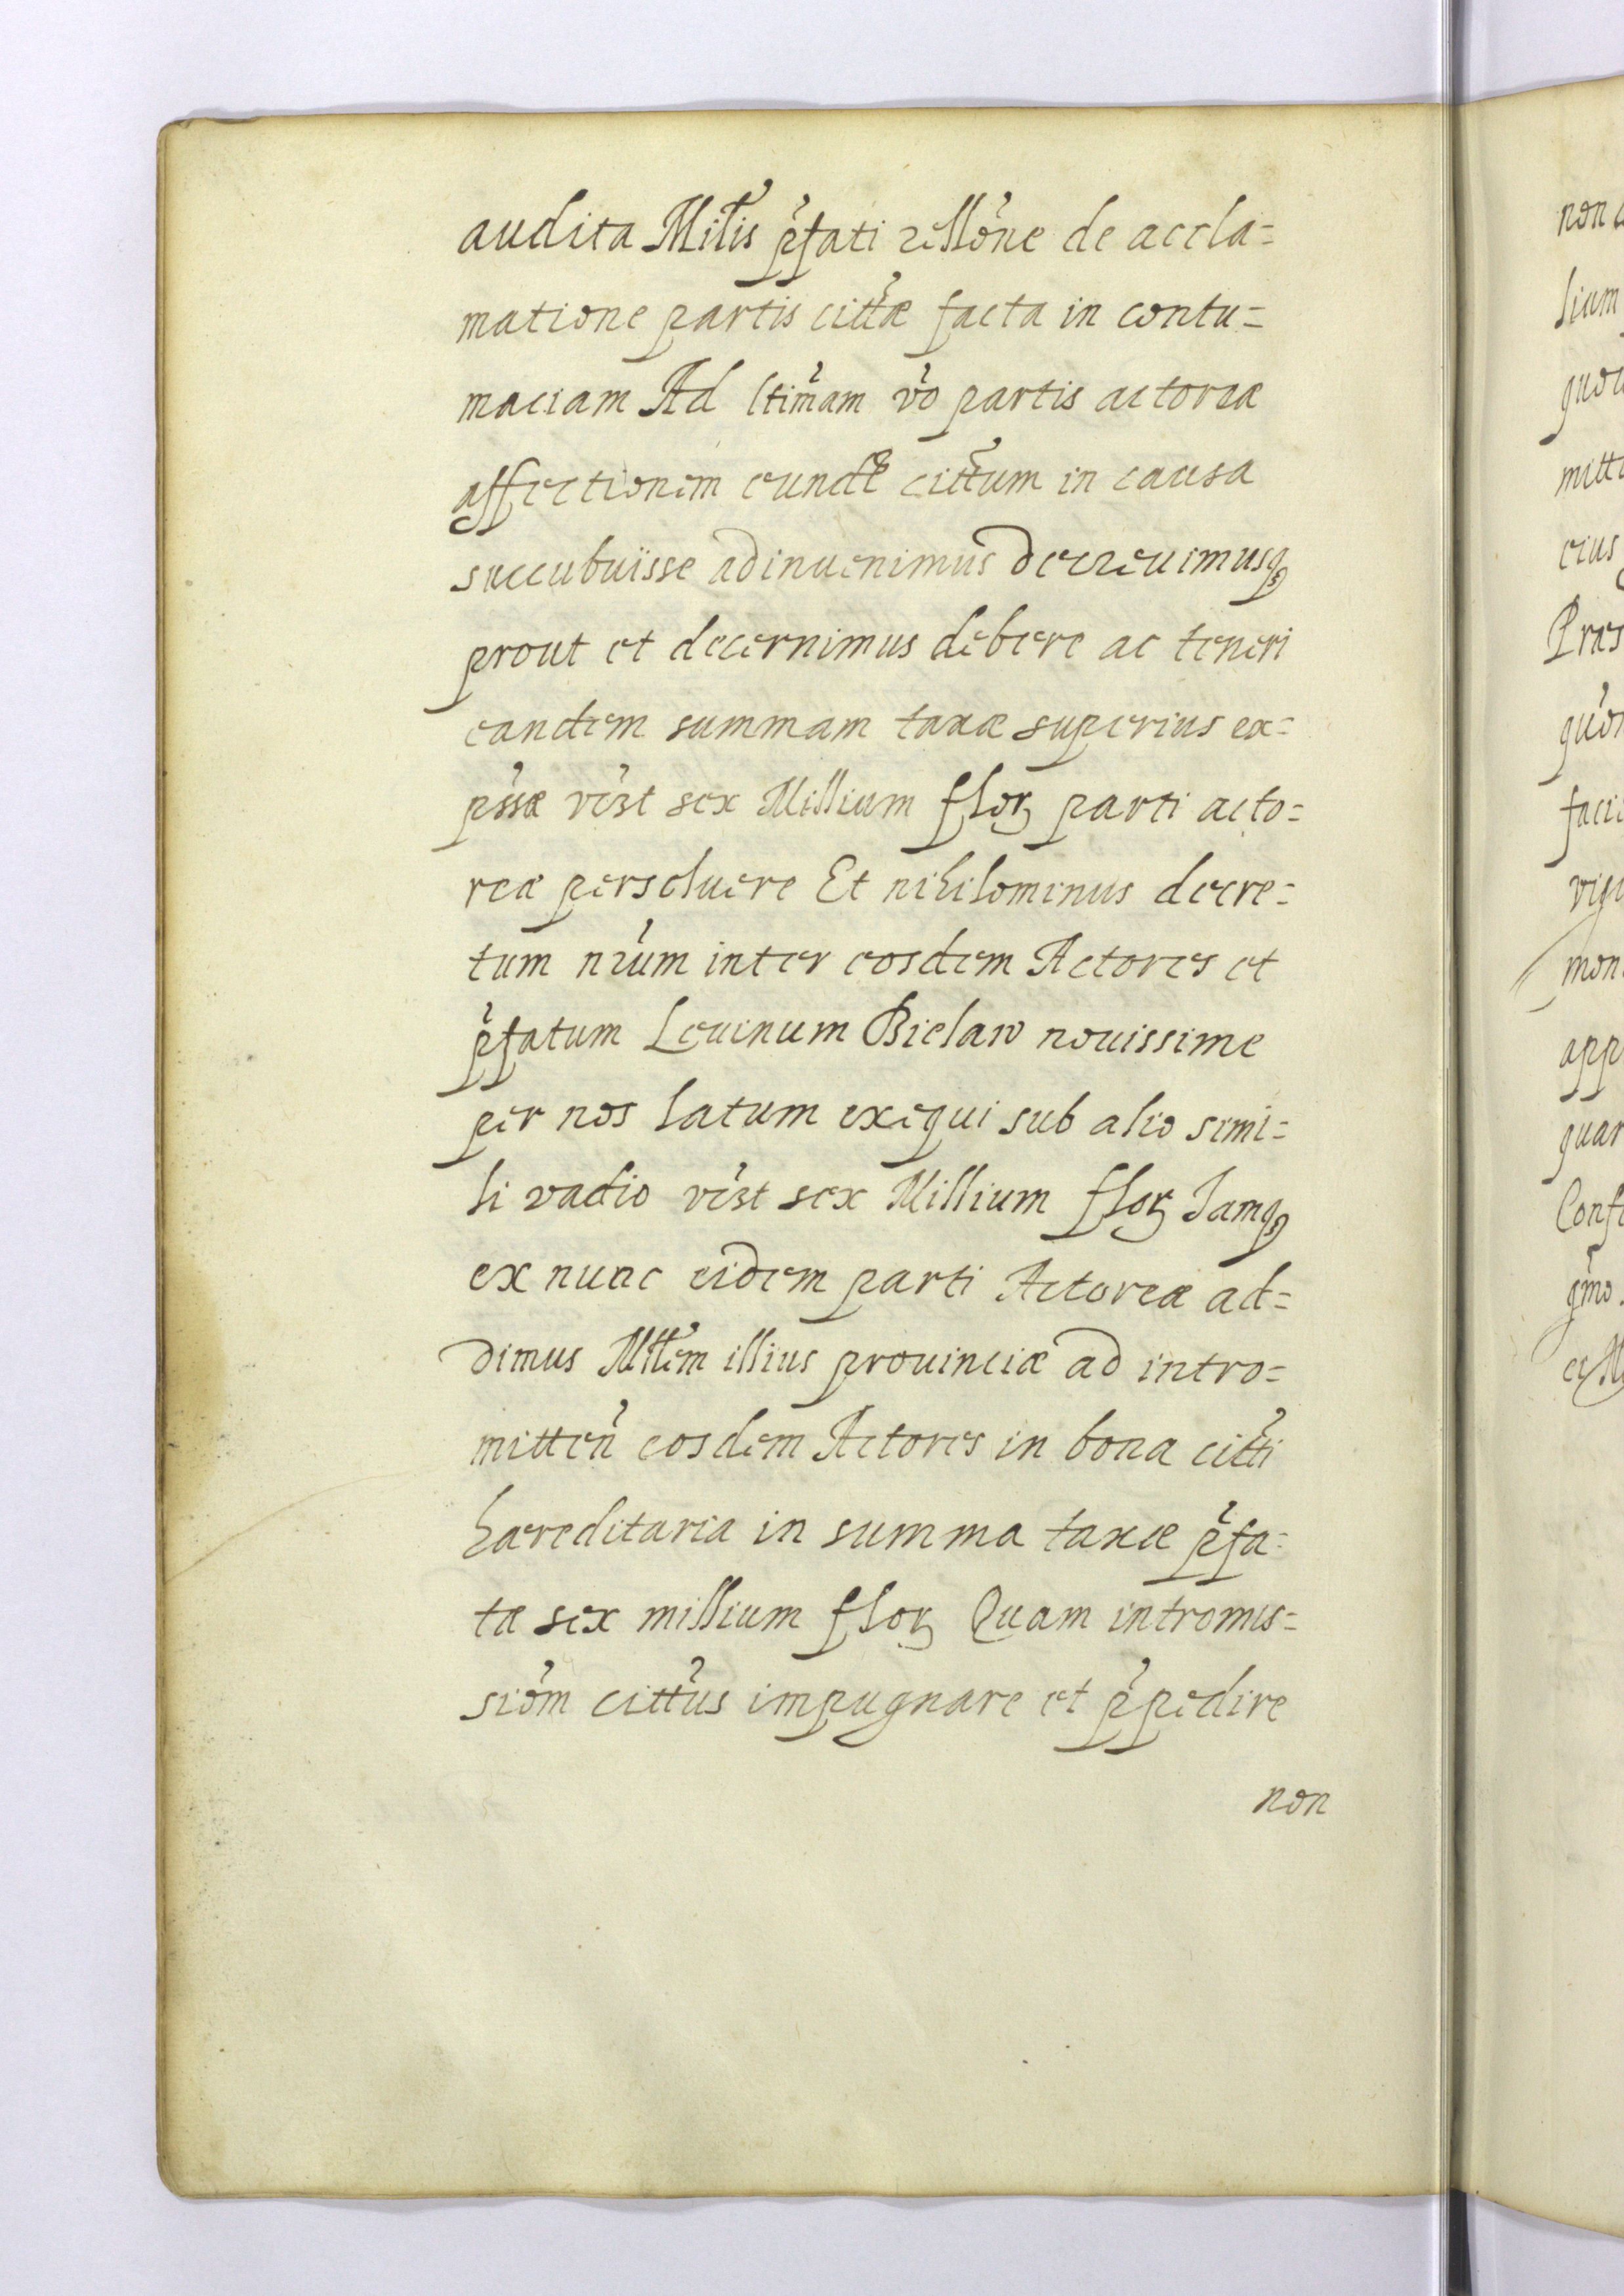 audita Militis p̃fati rellõne de accla=
matione partis cittæ facta in contu=
maciam Ad ltimãm vo partis actoreæ
affectionem eunde cittum in causa
succubuïsse adinuenimus decreuimusq
prout et decernimus debere ac teneri
eandem summam taxæ superius ex=
pssæ vizt sex Millium flor parti acto=
reæ persoluere Et nihilominus decre=
tum nrum inter eosdem Actores et
p̃fatum Leuinum Bielaw nouissime
per nos latum exequi sub alio simi=
li vadio vizt sex Millium flor Jamq
ex nunc eidem parti Actoreæ ad=
dimus Mittem illius prouinciæ ad intro=
mitten eosdem Actores in bona citti
haereditaria in summa taxæ p̃fa=
tæ sex millium flor Quam intromis=
siom cittus impugnare et p̃pedire
non
non
lium
mitt
eius
Præs
app
guar
Conf